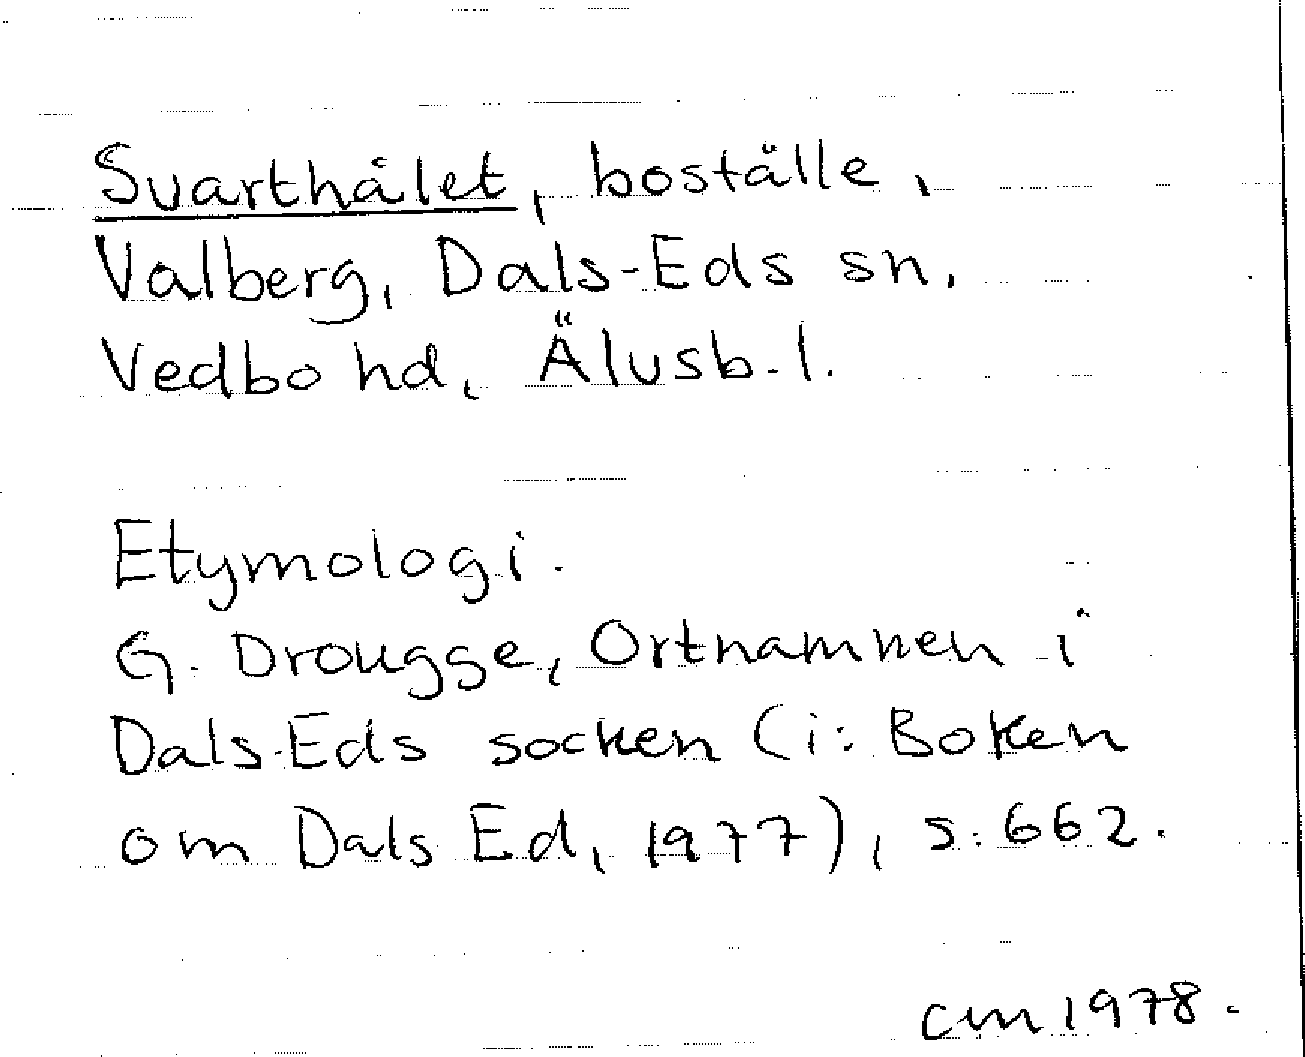 Svarthålet, boställe,
Valberg, Dals-Eds sn,
Vedbo hd, Älvsb. l.
Etymologi.
G. Drougge, Ortnamnen i
Dals-Eds socken (i: Boken
om Dals Ed, 1977), s. 662.
CM 1978.